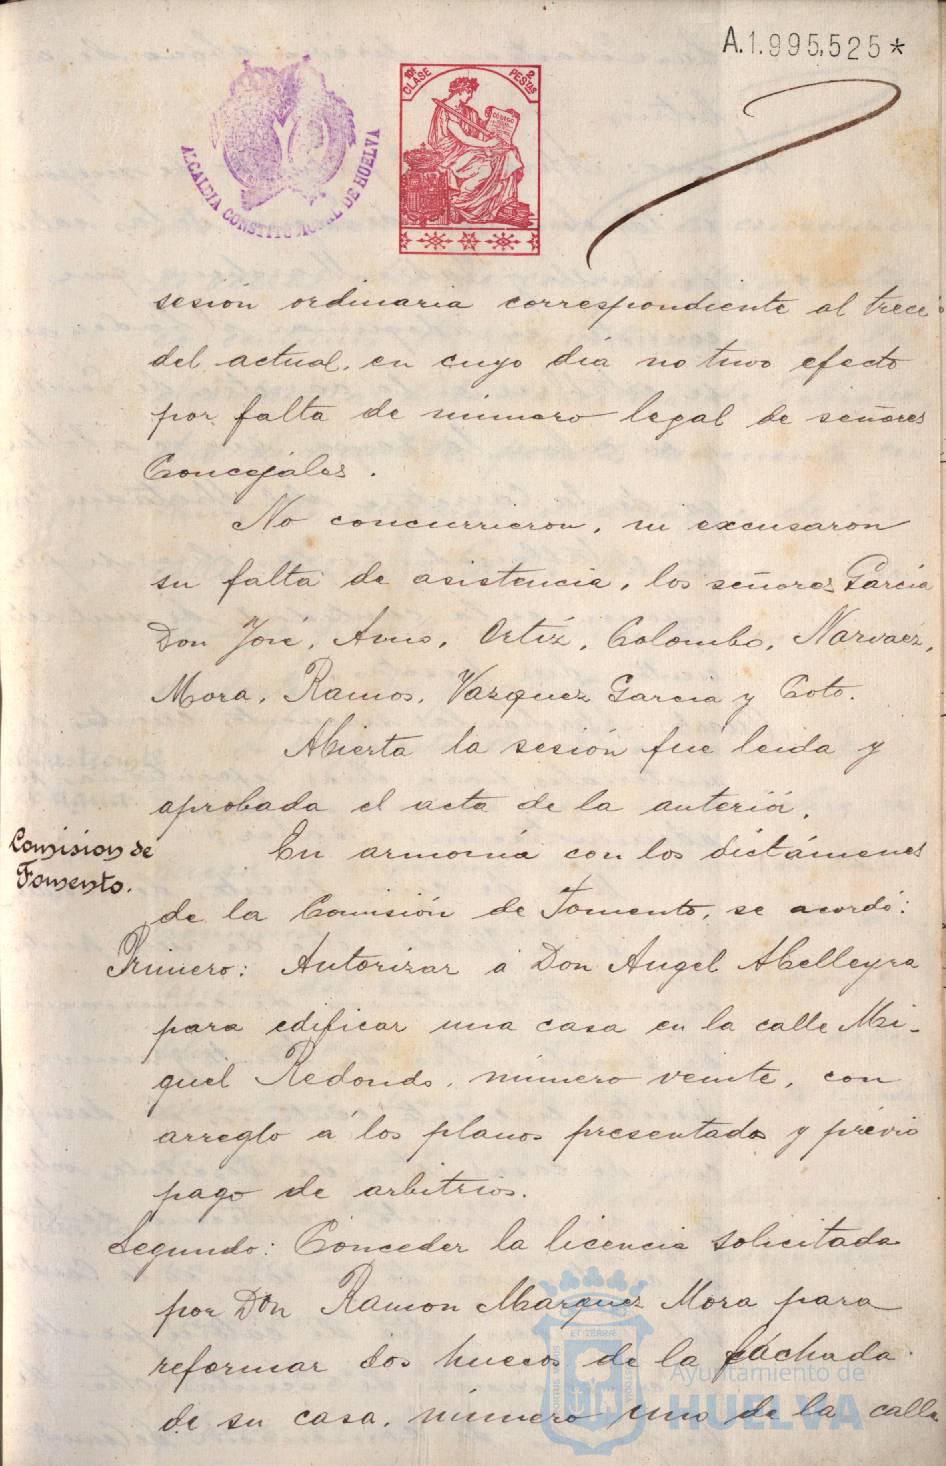 A.1.995.525*
10ª CLASE 2 PESTAS
CODIGO
ALCALDIA CONSTITUCIONAL DE HUELVA
sesión ordinaria correspondiente al trece
del actual, en cuyo día no tuvo efecto
por falta de número legal de señores
Concejales.
No concurrieron, ni excusaron
su falta de asistencia, los señores García
Don José, Ortíz, Colombo, Narvaez,
Mora, Ramos, Vazquez García y Coto.
Abierta la sesión fué leida y
aprobada el acta de la anterior.
Comision de
Fomento.
En armonía con los dictámenes
de la Comisión de Fomento, se acordó:
Primero: Autorizar á Don Angel Abelleyra
para edificar una casa en la calle Mi-
guel Redondo, número veinte, con
arreglo á los planos presentados y prévio
pago de arbitrios.
Segundo: Conceder la licencia solicitada
por Don Ramon Marquez Mora para
reformar dos huecos de la fachada
de su casa, número uno de la calle
Ayuntamiento de
HUELVA